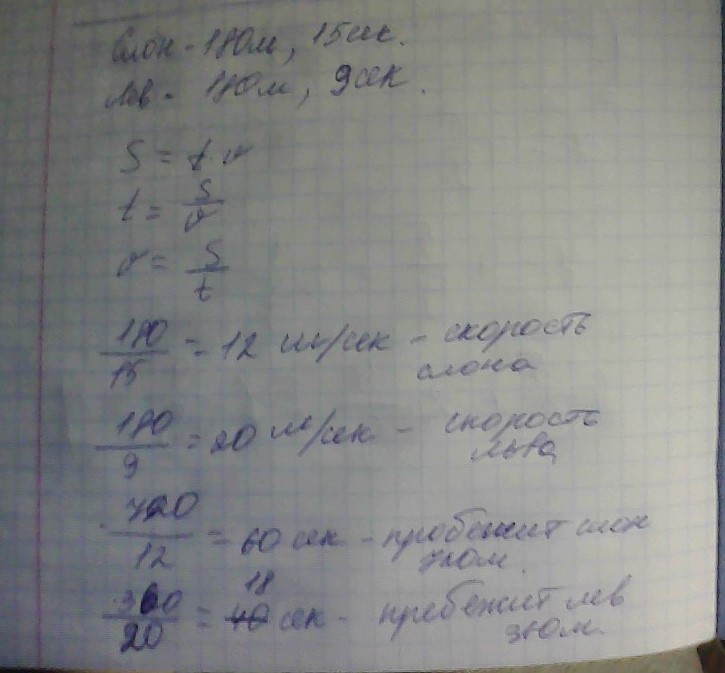 Слон - 180м, 15сек.
Лев - 180м, 9сек.
S = t · v
t = S/v
v = S/t
180/15 = 12 м/сек - скорость слона
180/9 = 20 м/сек - скорость льва
720/12 = 60 сек - пробежит слон 720м.
360/20 = 18 сек - пробежит лев 360м.